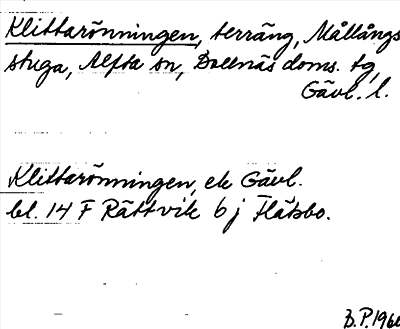 Klittarönningen, terräng, Mållångs
stuga, Alfta sn, Bollnäs doms. tg,
Gävl. l.
Klittarönningen, ek Gävl.
bl. 14 F Rättvik 6 j Flåsbo.
B.P. 196